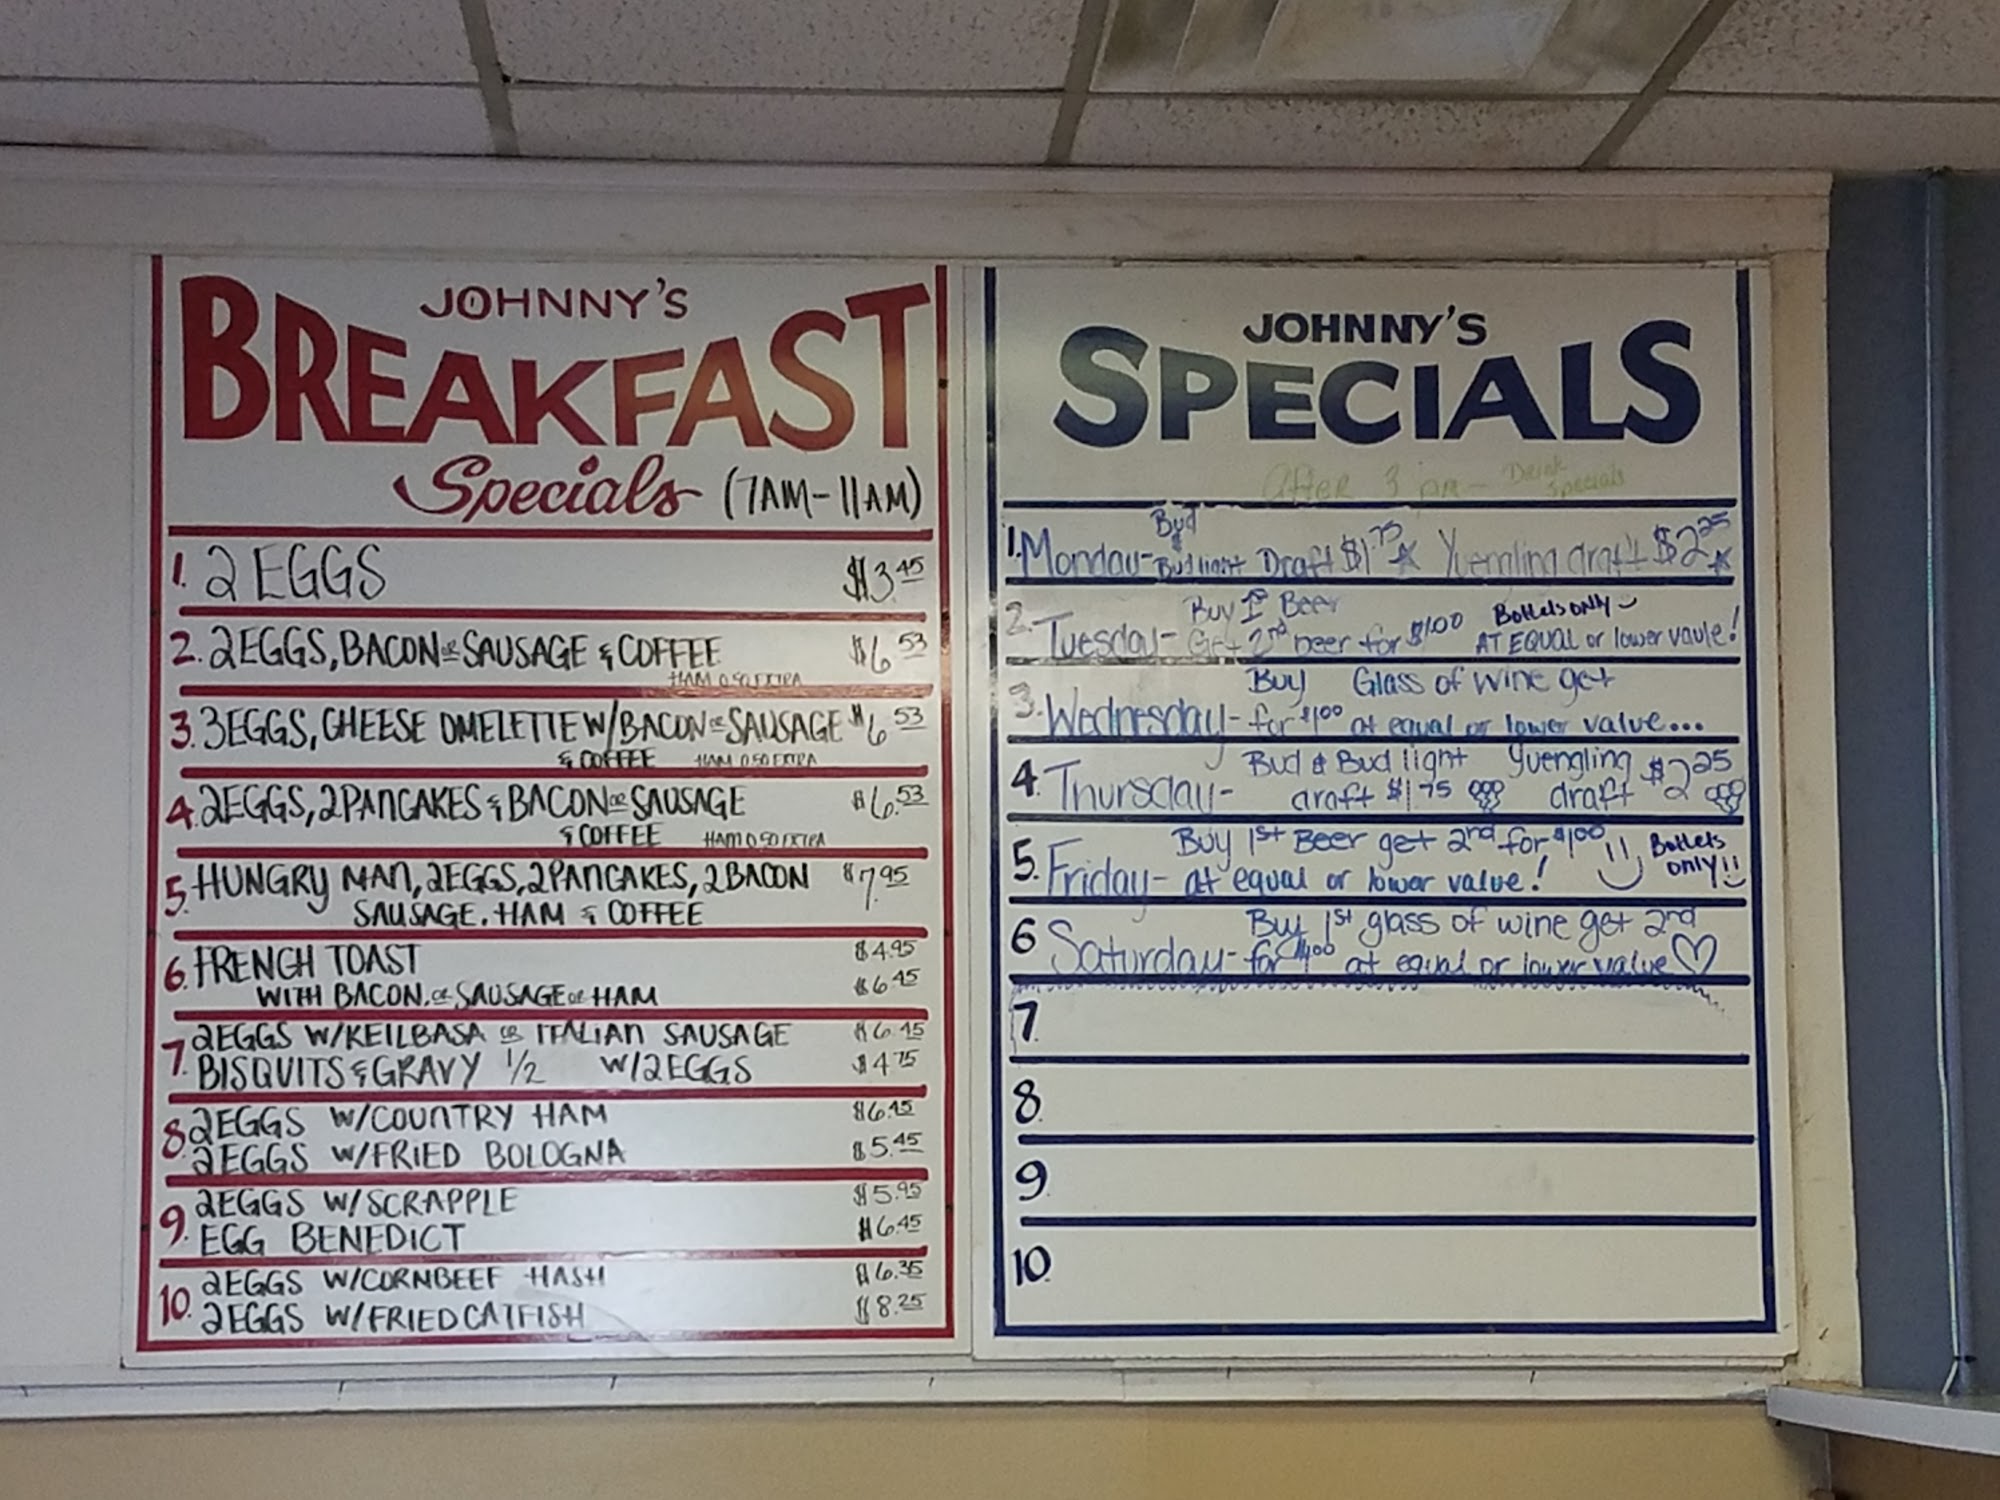 JOHNNY'S
BREAKFAST
Specials (7AM-11AM)
1. 2 EGGS $3.45
2. 2 EGGS, BACON OR SAUSAGE & COFFEE $6.53
HAM 0.50 EXTRA
3. 3 EGGS, CHEESE OMELETTE W/BACON OR SAUSAGE $6.53
& COFFEE HAM 0.50 EXTRA
4. 2 EGGS, 2 PANCAKES & BACON OR SAUSAGE $6.53
& COFFEE HAM 0.50 EXTRA
5. HUNGRY MAN, 2 EGGS, 2 PANCAKES, 2 BACON $7.95
SAUSAGE. HAM & COFFEE
6. FRENCH TOAST $4.95
WITH BACON. OR SAUSAGE OR HAM $6.45
7. 2 EGGS W/KEILBASA OR ITALIAN SAUSAGE $6.45
BISQUITS & GRAVY 1/2 W/2 EGGS $4.75
8. 2 EGGS W/COUNTRY HAM $6.45
2 EGGS W/FRIED BOLOGNA $5.45
9. 2 EGGS W/SCRAPPLE $5.95
EGG BENEDICT $6.45
10. 2 EGGS W/CORNBEEF HASH $6.35
2 EGGS W/FRIED CATFISH $8.25
JOHNNY'S
SPECIALS
After 3 pm - Drink Specials
1. Monday- Bud & Bud light Draft $1.75 Yuengling draft $2.25
2. Tuesday- Buy 1st Beer Bottels ONLY
Get 2nd beer for $1.00 AT EQUAL or lower vaule!
3. Wednesday- Buy Glass of wine get
for $1.00 at equal or lower value...
4. Thursday- Bud & Bud light Yuengling $2.25
draft $1.75 draft
5. Friday- Buy 1st Beer get 2nd for $1.00 Bottels
at equal or lower value! only!!
6 Saturday- Buy 1st glass of wine get 2nd
for $1.00 at equal or lower value
7.
8.
9.
10.